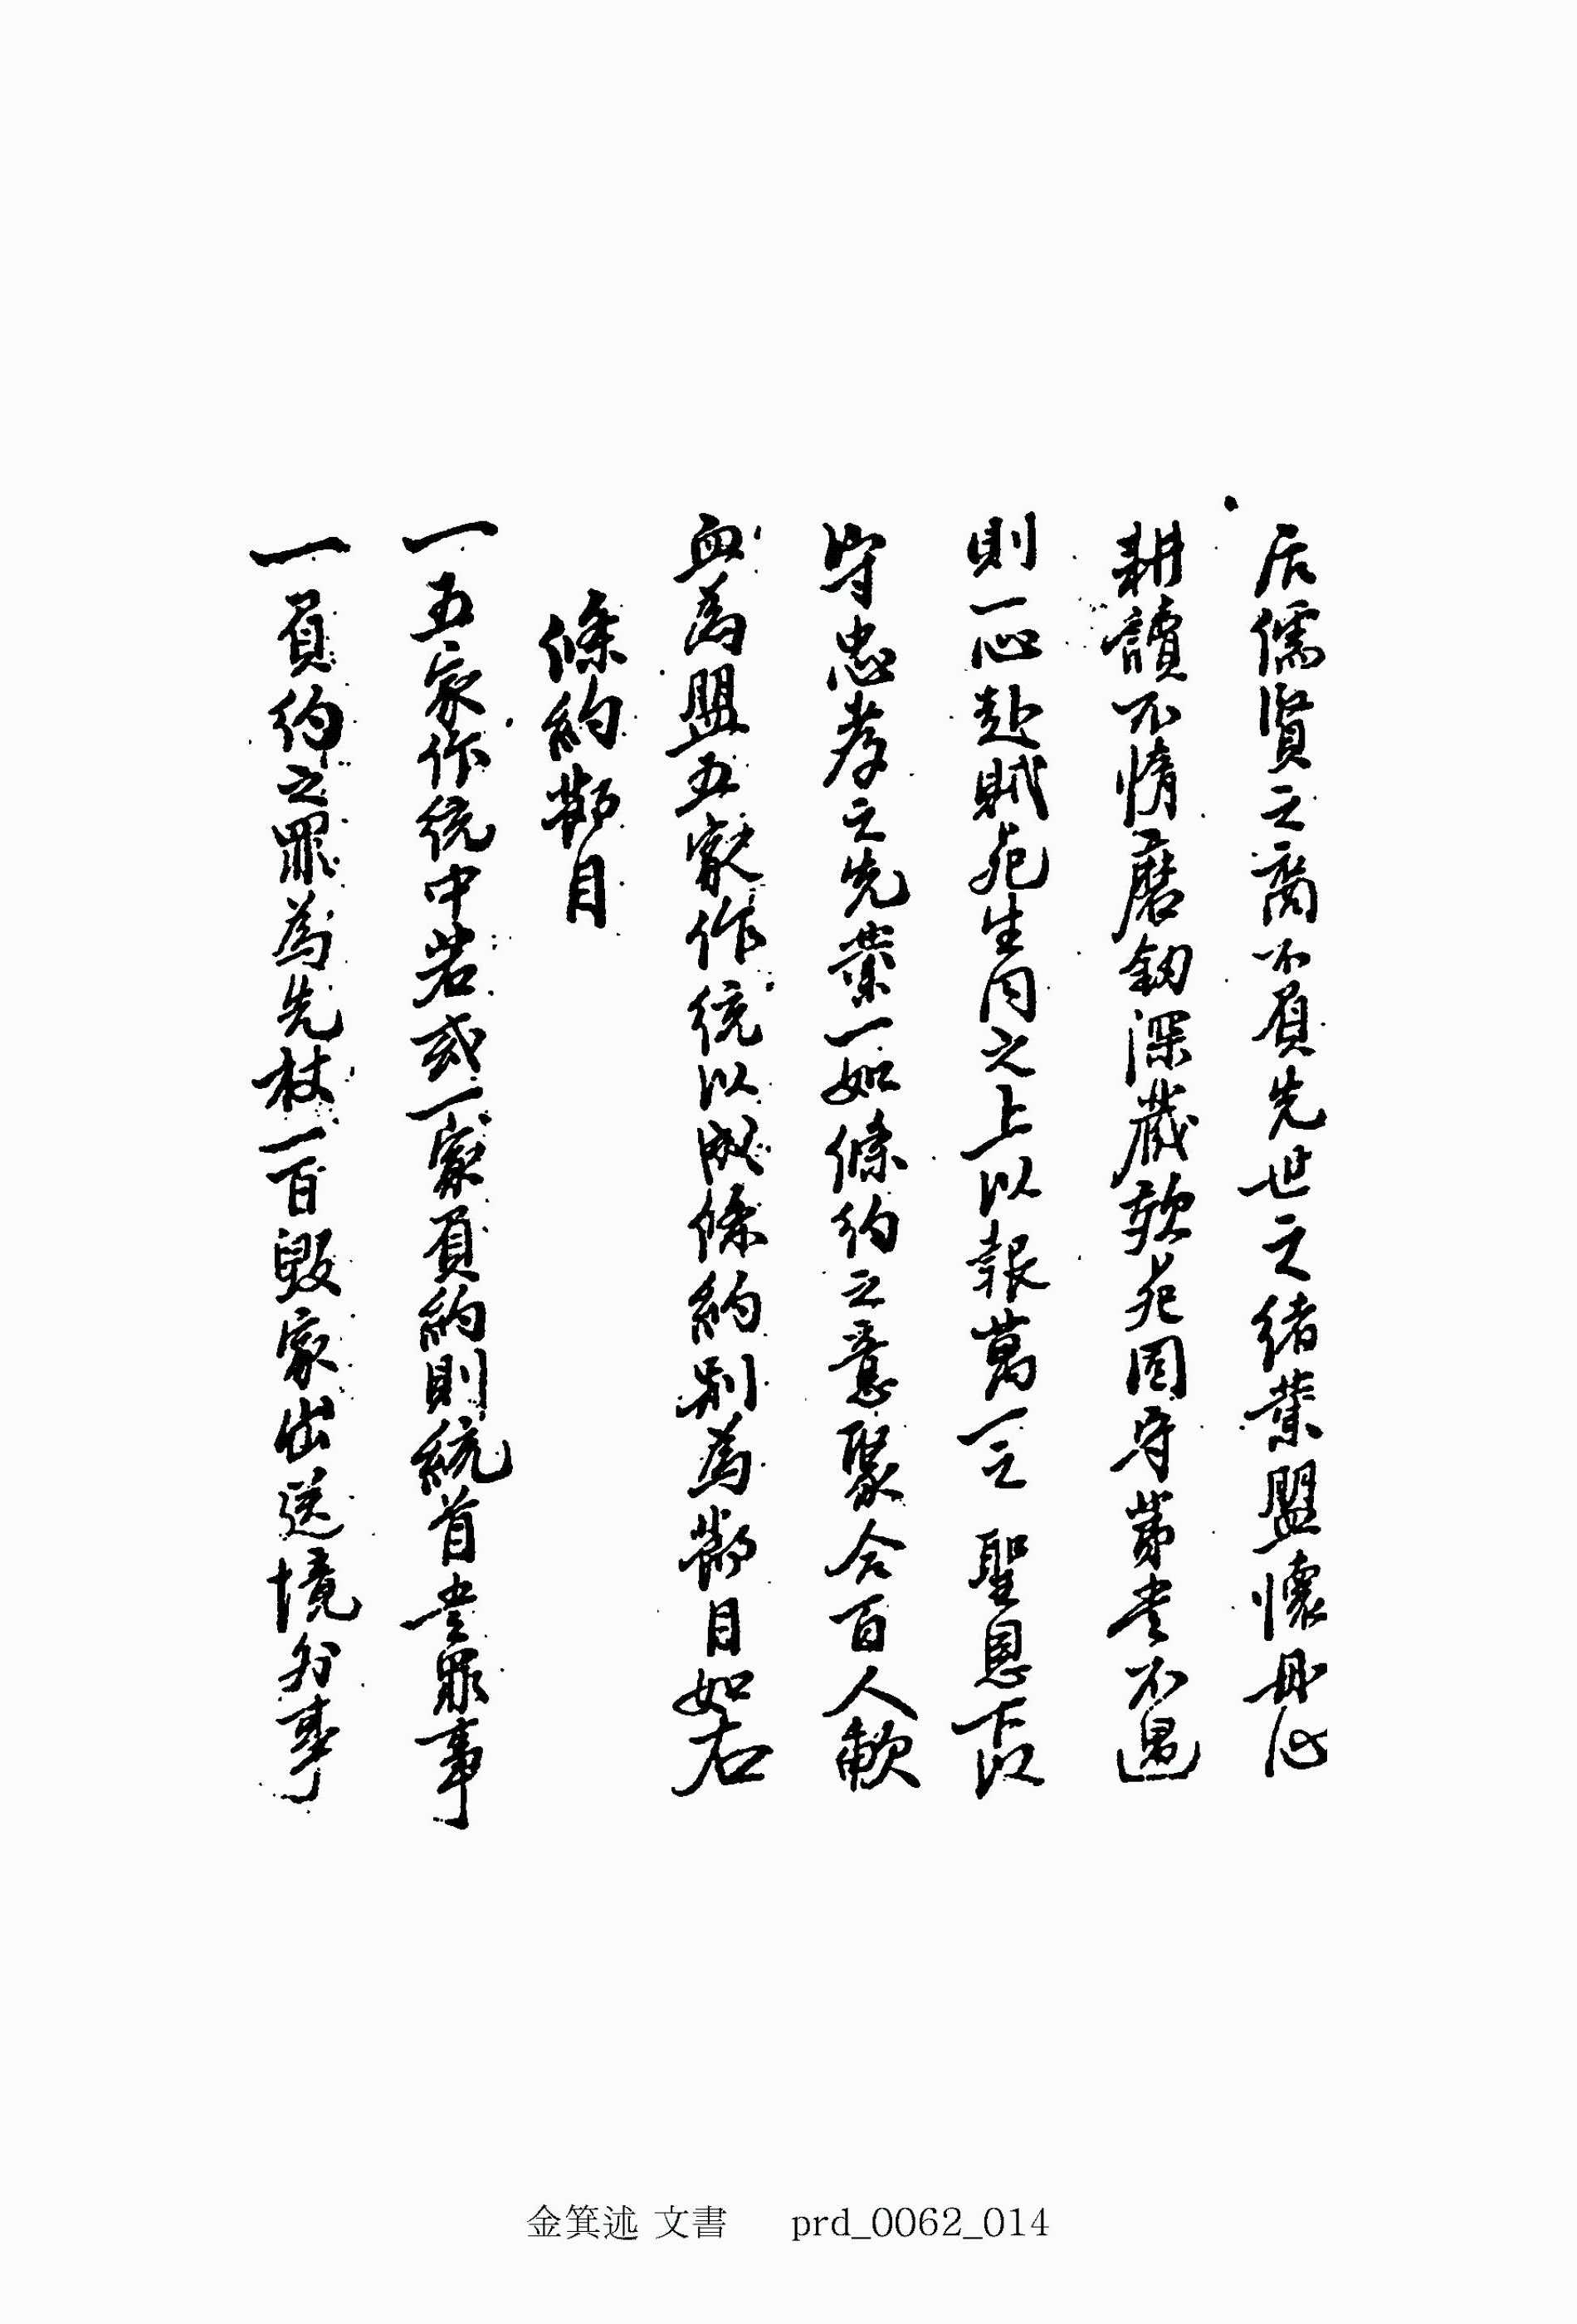 后儒賢之裔不負先世之緒業盟懷丹心
耕讀不惰磨釰深藏歃死固守黨末不遇
則一心赴賊死生同之上以報萬一之 聖恩下以
守忠孝之先業一如條約之意聚合百人歃
血爲盟五家作統以成條約別爲節目如右
條約節目
一五家作統中若或一家負約則統首先罪事
一負約之罪爲先杖一百毀家出送境外事
金箕述 文書 prd_0062_014